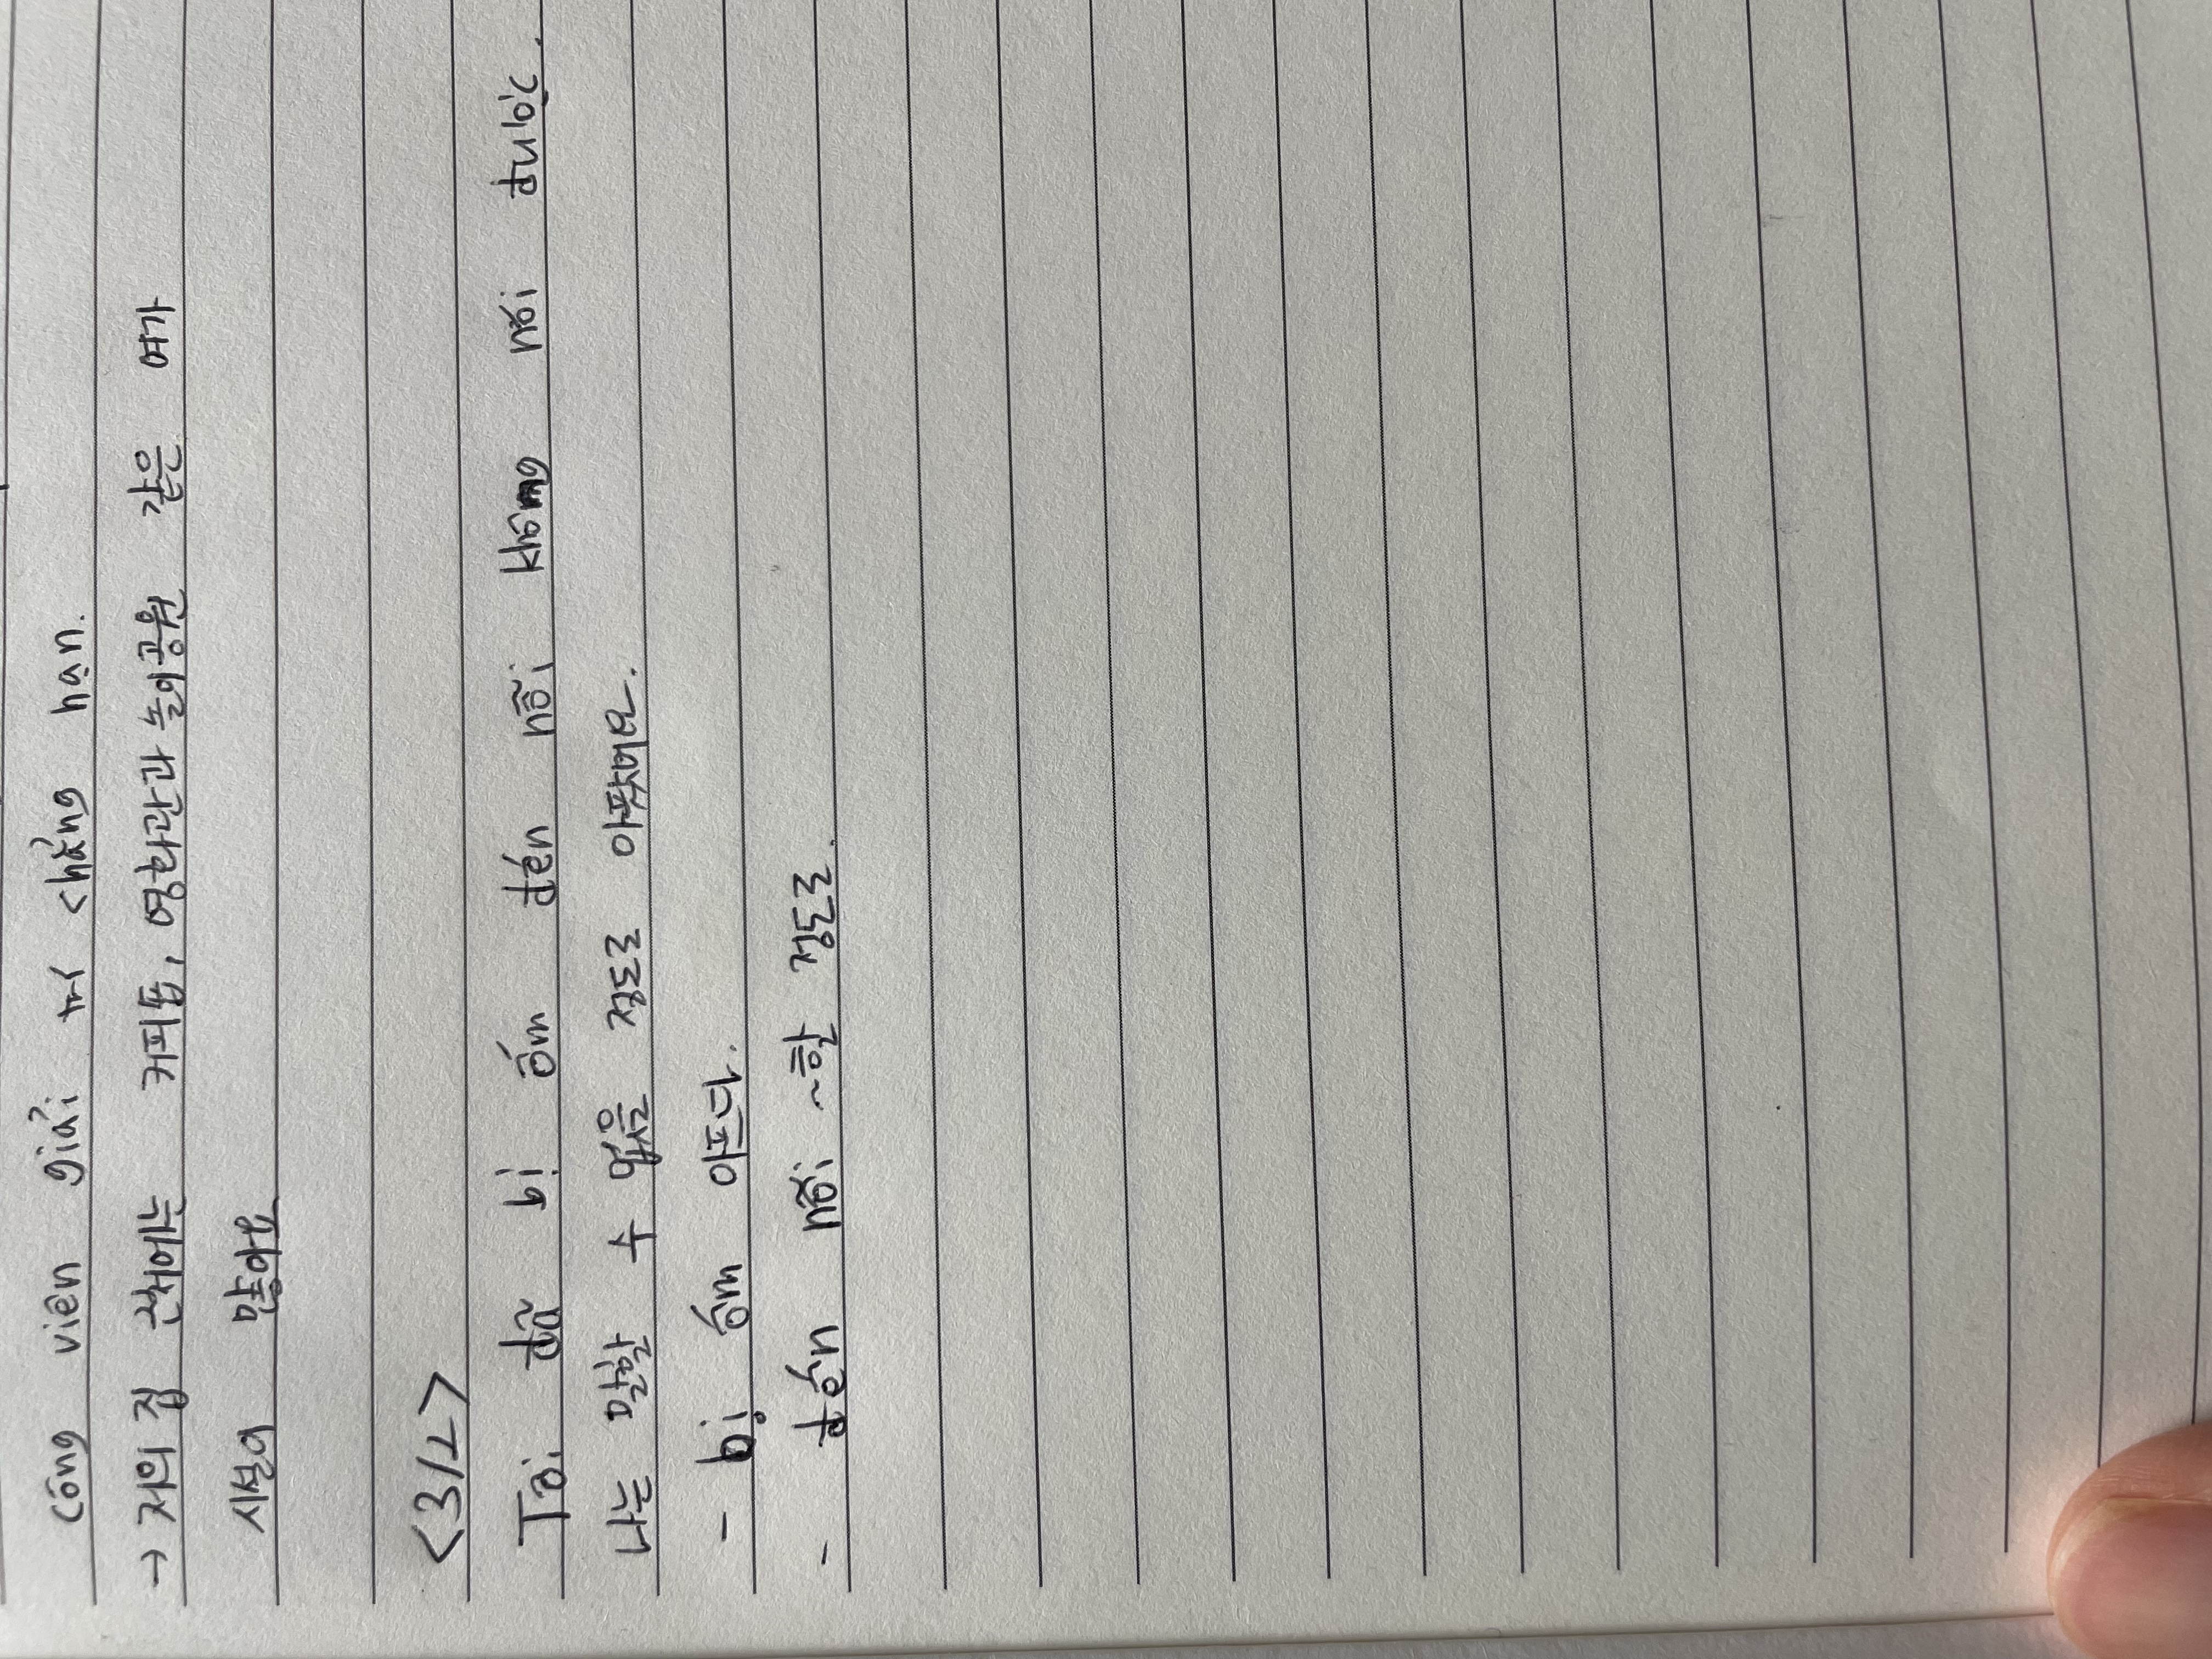 công viên giải trí chẳng hạn.
→ 저의 집 근처에는 커피숍, 영화관과 놀이공원 같은 여가
시설이 많아요
<3/2>
Tôi đã bị ốm đến nỗi không nói được.
나는 말할 수 없을 정도로 아팠어요.
- bị ốm 아프다.
- đến nỗi ~할 정도로.